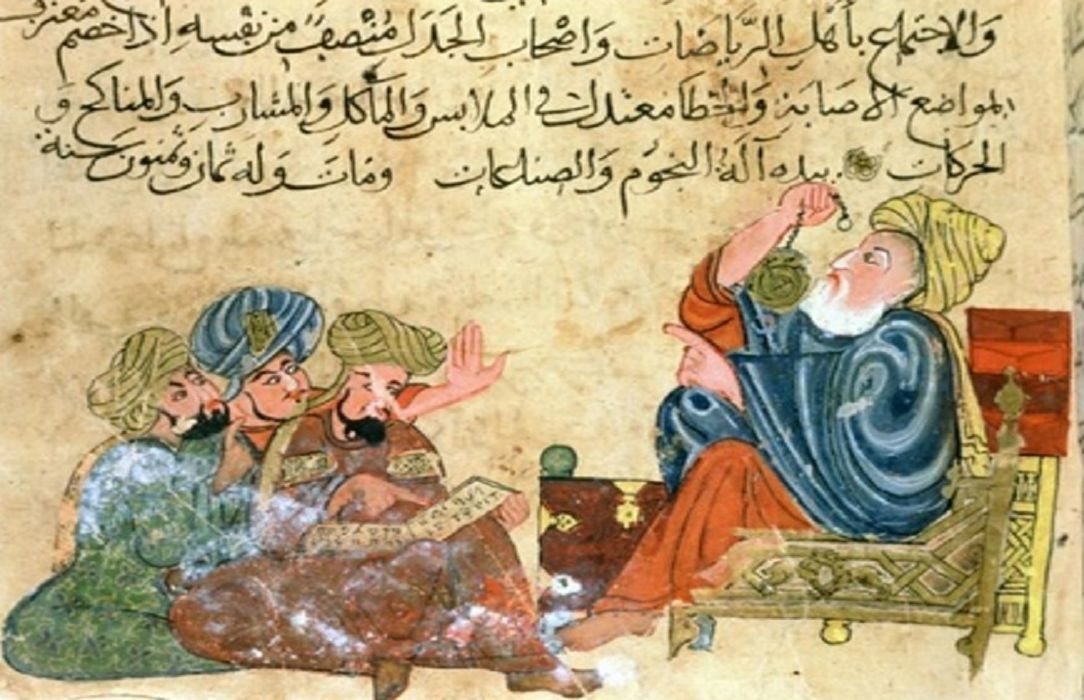 معترف
والاجتماع باهل الرياضات واصحاب الجدل منصف من نفسه اذا خصم
بمواضع الاصابة والخطا معتدل في الملابس والمآكل والمشارب والمناكح و
الحركات بيده آلة النجوم والصناعات ومات وله ثمان وثمنون سنة